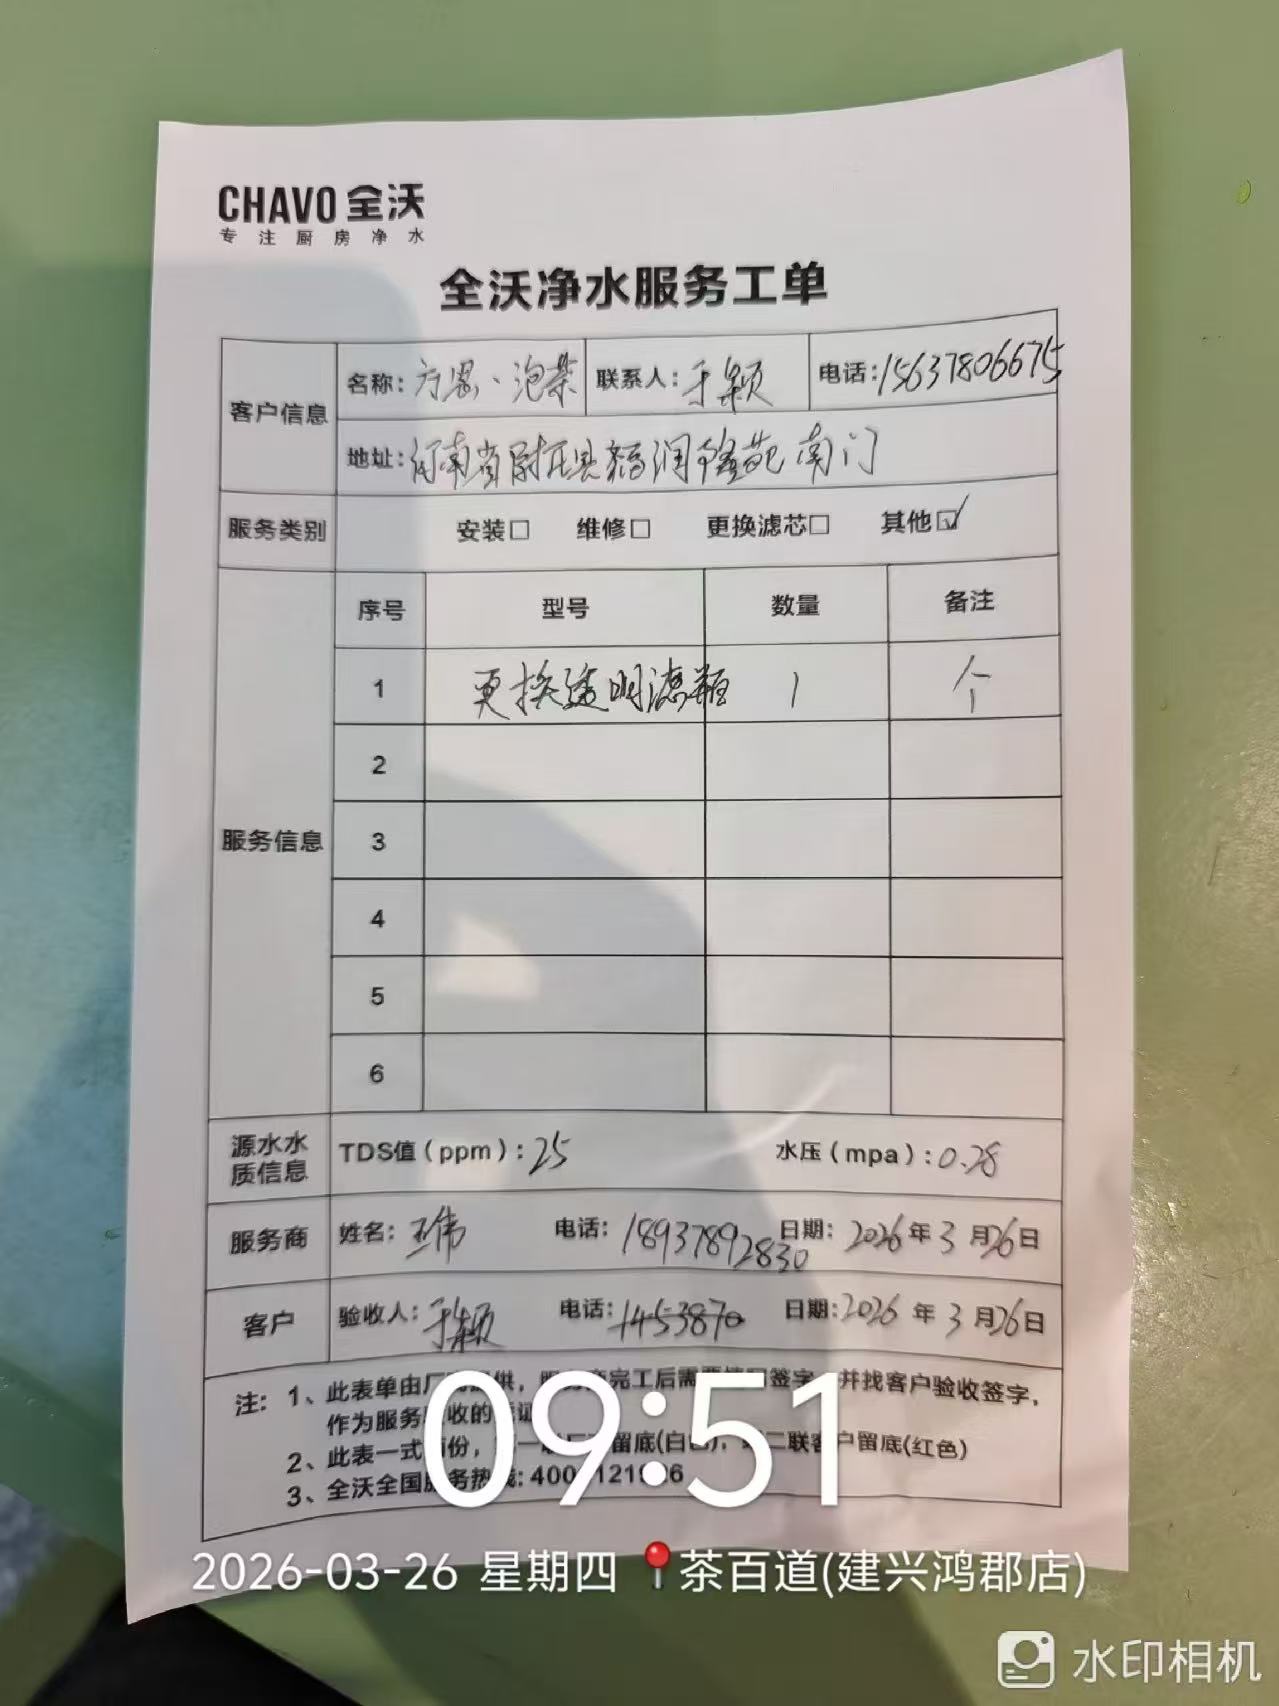 CHAVO 全沃
专注厨房净水
全沃净水服务工单
客户信息 名称: 方恩、泡茶 联系人: 于颖 电话: 15637806675
地址: 河南省尉氏县福润隆苑南门
服务类别 安装□ 维修□ 更换滤芯□ 其他☑
服务信息 序号 型号 数量 备注
1 更换透明滤瓶 1 个
2
3
4
5
6
源水水质信息 TDS值(ppm): 25 水压(mpa): 0.28
服务商 姓名: 王伟 电话: 18937892830 日期: 2026年3月26日
客户 验收人: 于颖 电话: 1453870 日期: 2026年3月26日
注: 1、此表单由厂 供, 完工后需要 签字 并找客户验收签字,
作为服务 收的凭证
2、此表一式 份, 留底(白 ), 二联客户留底(红色)
3、全沃全国服务热线: 400 121 6
09:51
2026-03-26 星期四 茶百道(建兴鸿郡店)
水印相机